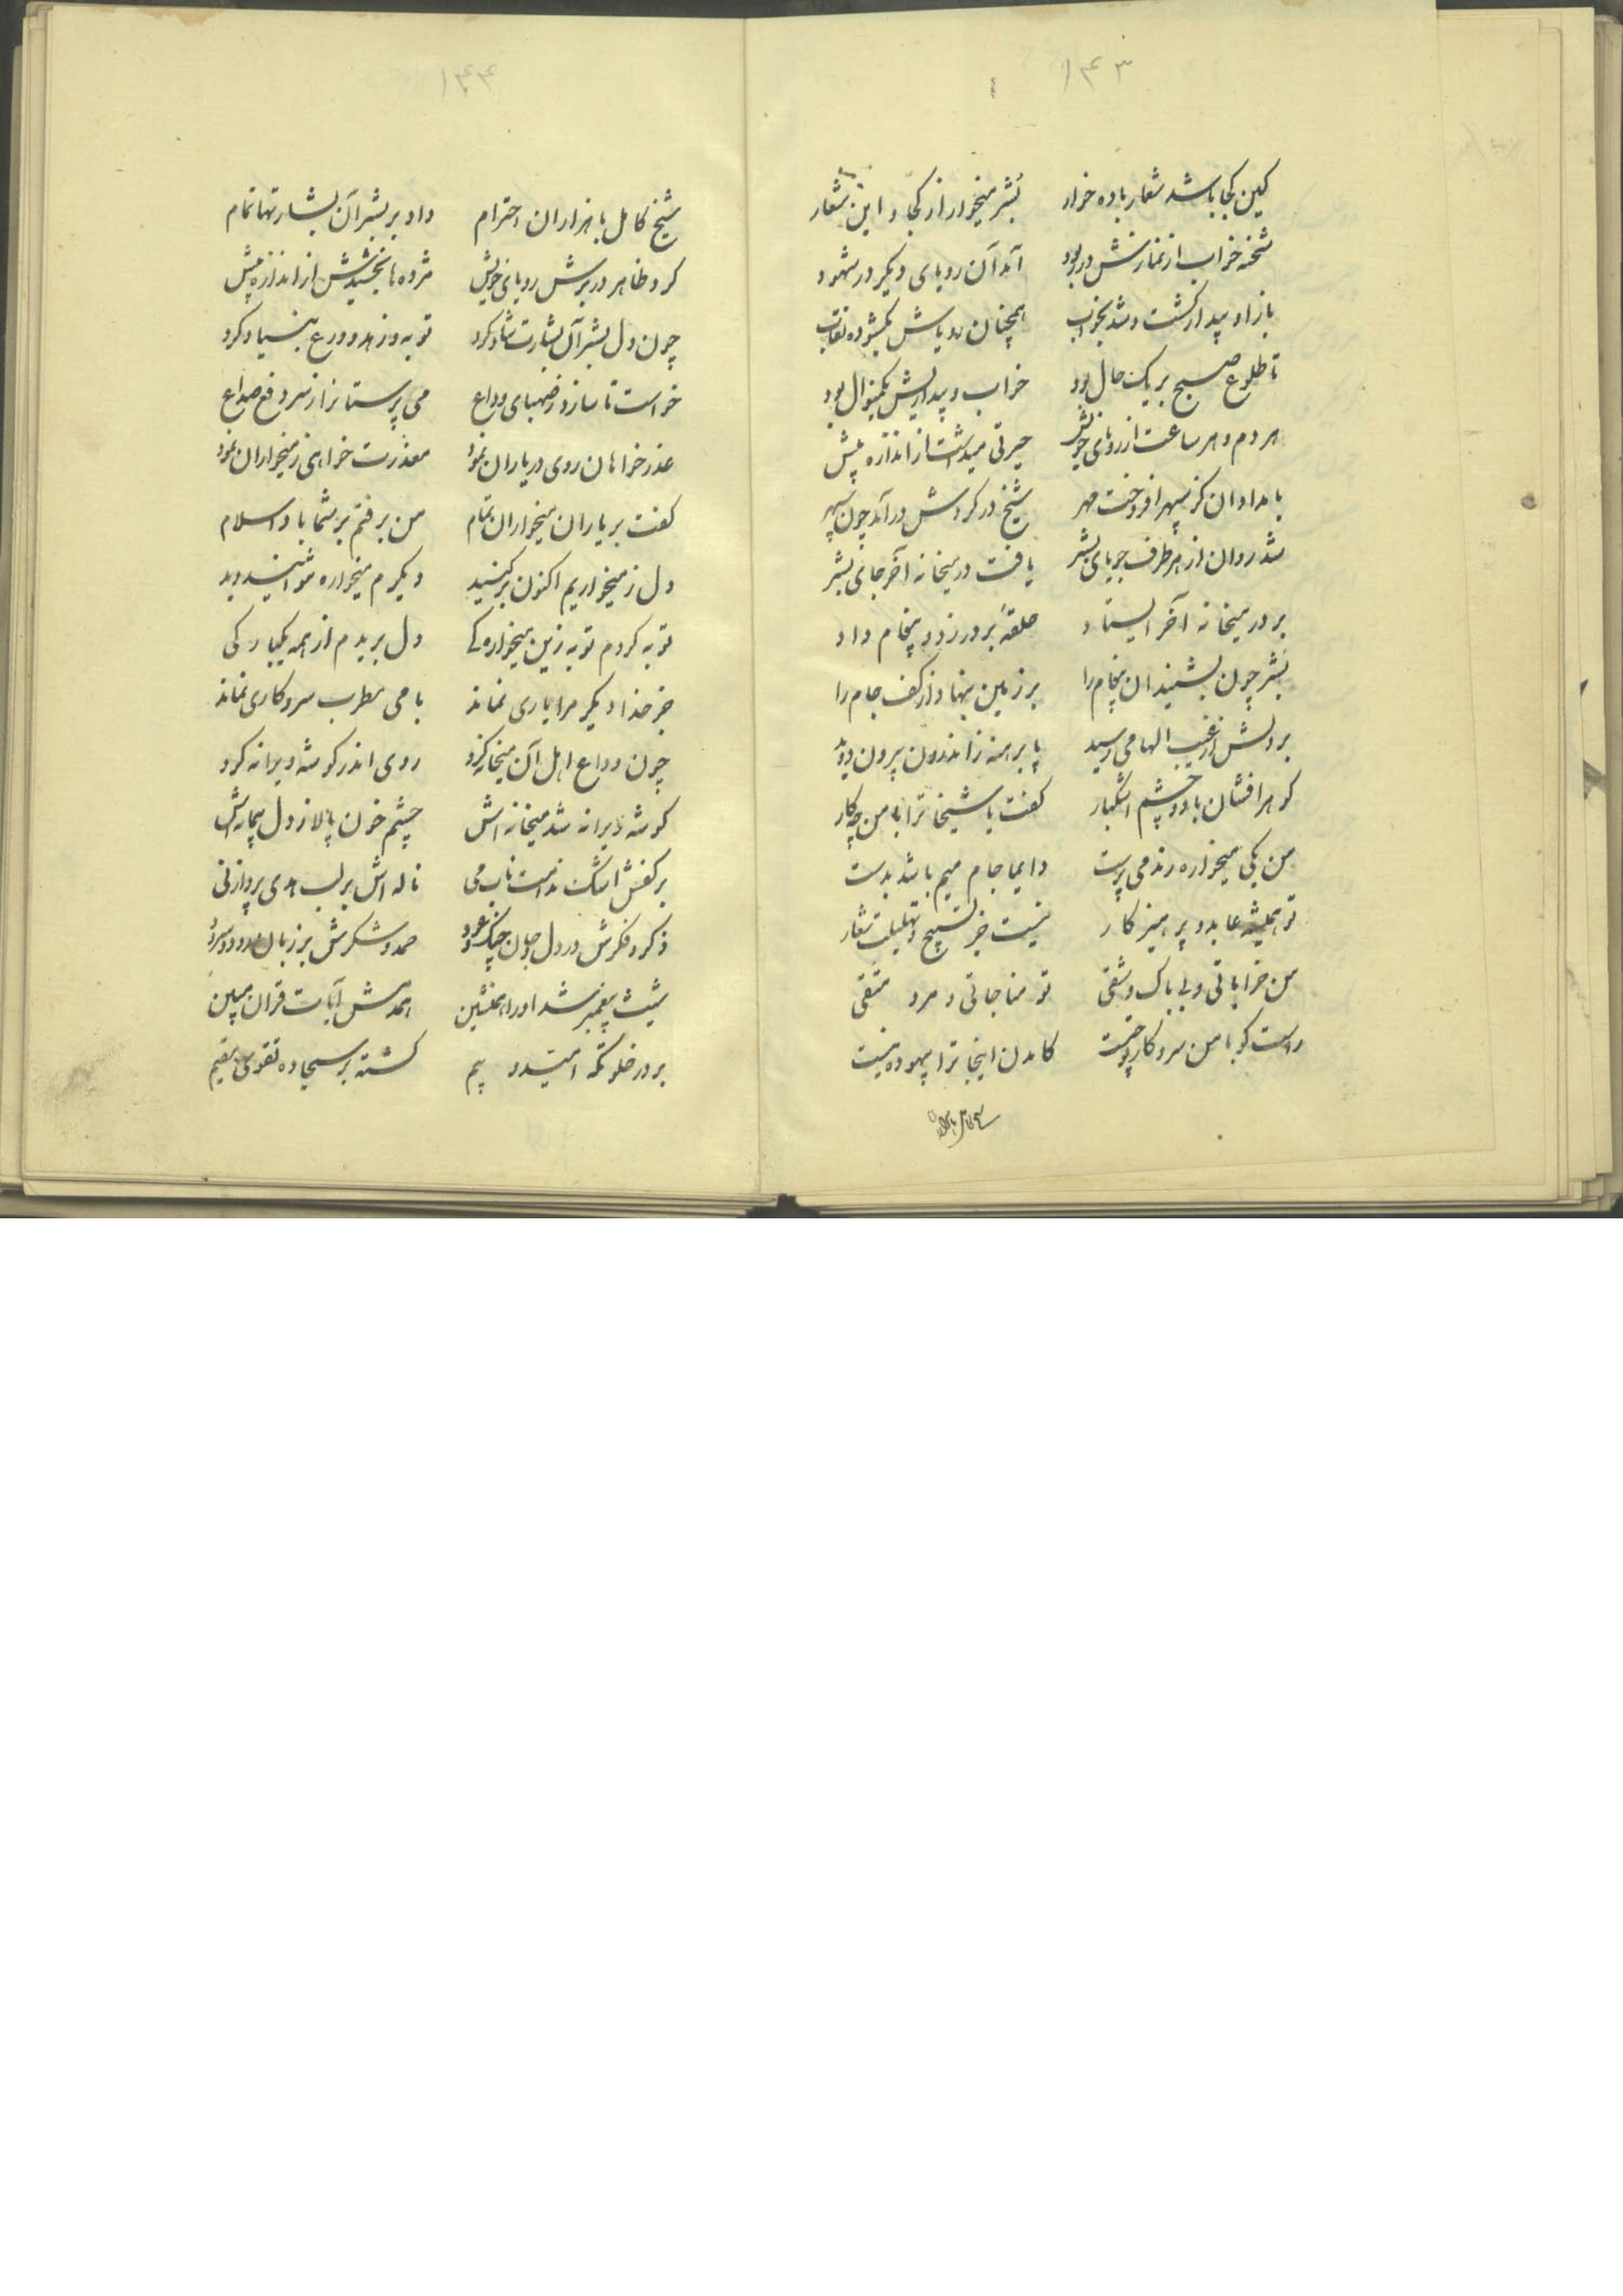 ۱۴۳
کین کجا باشد شعار باده خوار بشر میخوار از کجا و این شعار
شحنه خواب از نماز نش در ربود آمد آن رویای دیگر در شهود
باز او بیدار گشت و شد بخواب همچنان رویاش بگشوده نقاب
تا طلوع صبح بر یک حال بود خواب و بیداریش یکمنوال بود
هر دم و هر ساعت از رویای خویش حیرتی میداشت از اندازه بیش
بامدادان کز سپهر افروخت مهر شیخ در گردش درآمد چون سپهر
شد روان از هر طرف جویای بشر یافت در میخانه آخر جای بشر
بر در میخانه آخر ایستاد حلقهٔ بر در زد و پیغام داد
بشر چون بشنید ان پیغام را بر زمین بنهاد از کف جام را
بر دلش از غیب الهامی رسید پا برهنه ز اندرون بیرون دوید
گوهر افشان با دو چشم اشگبار گفت یا شیخا ترا با من چه کار
من یکی میخواره رند می پرست دایما جام میم باشد بدست
تو همیشه عابد و پرهیز کار نیست جز تسبیح و تهلیلت شعار
من خراباتی و بی باک و شقی تو مناجاتی و مرد متقی
راست گو با من سر و کار تو چیست کامدن اینجا ترا بیهوده نیست
شیخ کامل با
۱۴۴
شیخ کامل با هزاران احترام داد بر بشر آن بشارتها تمام
کرد ظاهر در برش رویای خویش مژده ها بخشیدش از اندازه بیش
چون دل بشر آن بشارت شاد کرد توبه و زهد و ورع بنیاد کرد
خواست تا سازد ز صهبای وداع می پرستانرا ز سر دفع صداع
عذر خواهان روی در یاران نمود معذرت خواهی ز میخواران نمود
گفت بر یاران میخواران تمام من برفتم بر شما باد اسلام
دل ز میخواریم اکنون برکنید دیگرم میخواره مشناسید
توبه کردم توبه زین میخوارگی دل بریدم از همه یکبارگی
جز خدا دیگر مرا یاری نماند با می و مطرب سر و کاری نماند
چون وداع اهل آن میخانه کرد روی اندر گوشه ویرانه کرد
گوشه ویرانه شد میخانه اش چشم خون پالا ز دل پیمانه اش
بر کفش اشک ندامت ناب می ناله اش بر لب همی پرداز نی
ذکر و فکرش در دل چون چنگ و عود حمد و شکرش بر زبان رود و سرود
شیث پیغمبر شد او را همنشین همدمش آیات قران مبین
بر در خلوتگه امید و بیم گشته بر سجاده تقوی مقیم